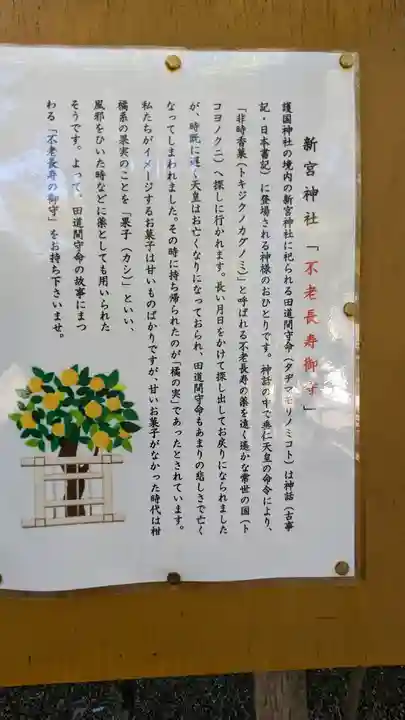 新宮神社「不老長寿御守」
護国神社の境内の新宮神社に祀られる田道間守命(タヂマモリノミコト)は神話(古事
記・日本書記)に登場される神様のおひとりです。神話の中で垂仁天皇の命令により、
「非時香菓(トキジクノカグノミ)」と呼ばれる不老長寿の薬を遠く遥かな常世の国(ト
コヨノクニ)へ探しに行かれます。長い月日をかけて探し出してお戻りになられました
が、時既に遅く天皇はお亡くなりになっておられ、田道間守命もあまりの悲しさで亡く
なってしまわれました。その時に持ち帰られたのが「橘の実」であったとされています。
私たちがイメージするお菓子は甘いものばかりですが、甘いお菓子がなかった時代は柑
橘系の果実のことを「果子(カシ)」といい、
風邪をひいた時などに薬としても用いられた
そうです。よって、田道間守命の故事にまつ
わる「不老長寿の御守」をお持ち下さいませ。